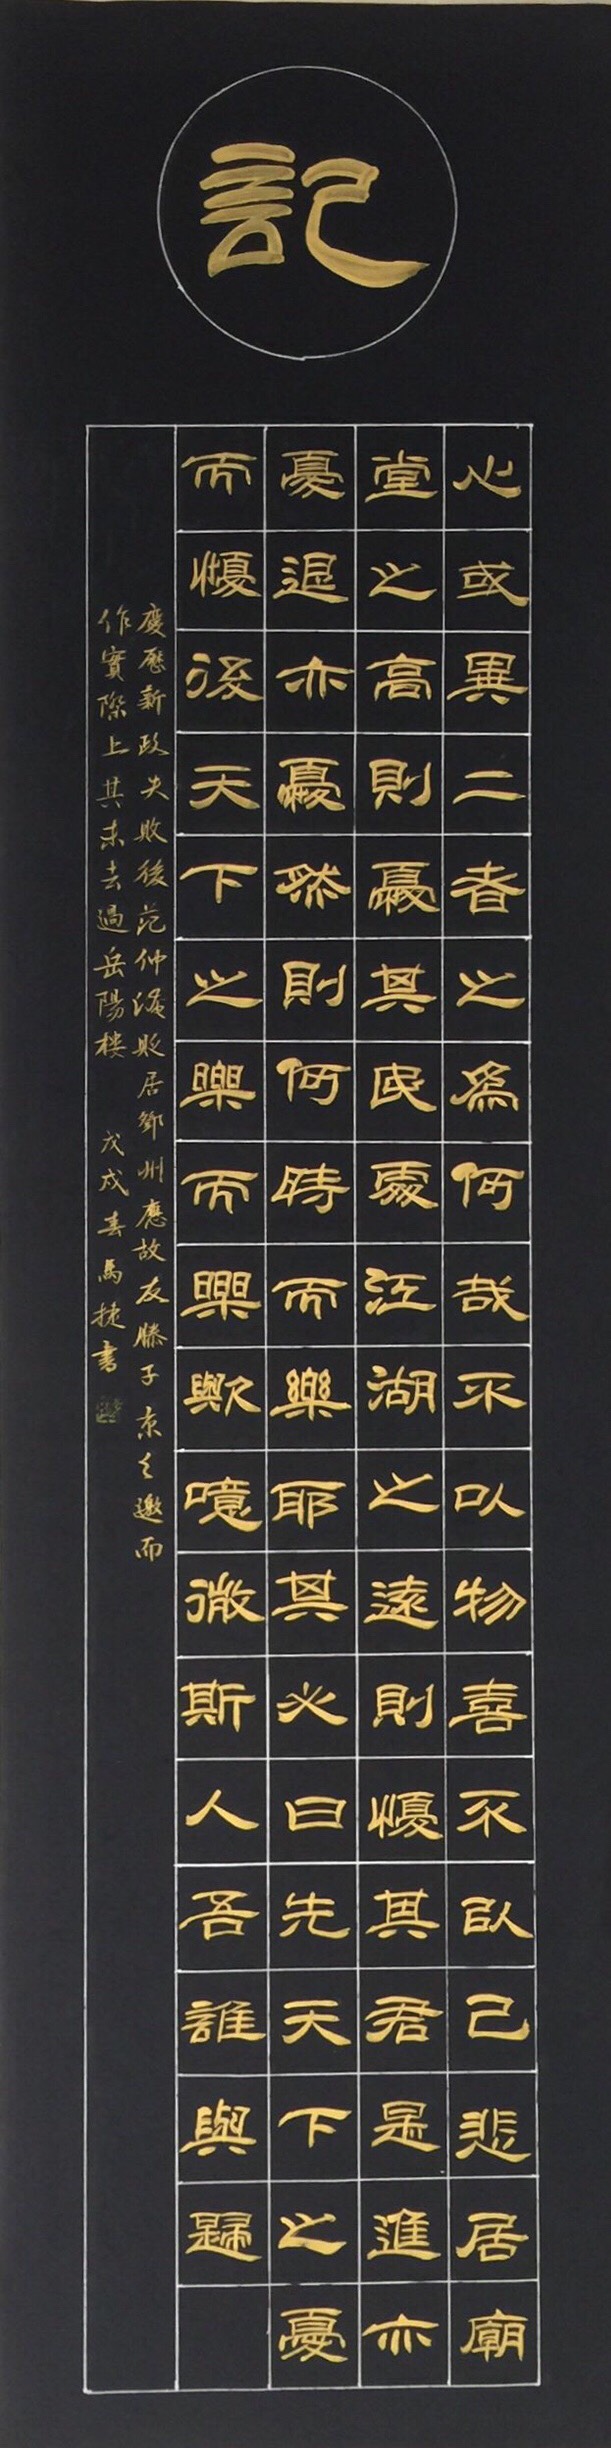 記
心或異二者之為何哉不以物喜不以己悲居廟
堂之高則憂其民處江湖之遠則懮其君是進亦
憂退亦憂然則何時而樂耶其必曰先天下之憂
而懮後天下之樂而樂歟噫微斯人吾誰與歸
慶歷新政失敗後范仲淹貶居鄧州應故友滕子京之邀而
作實際上其未去過岳陽樓 戊戌春馬捷書